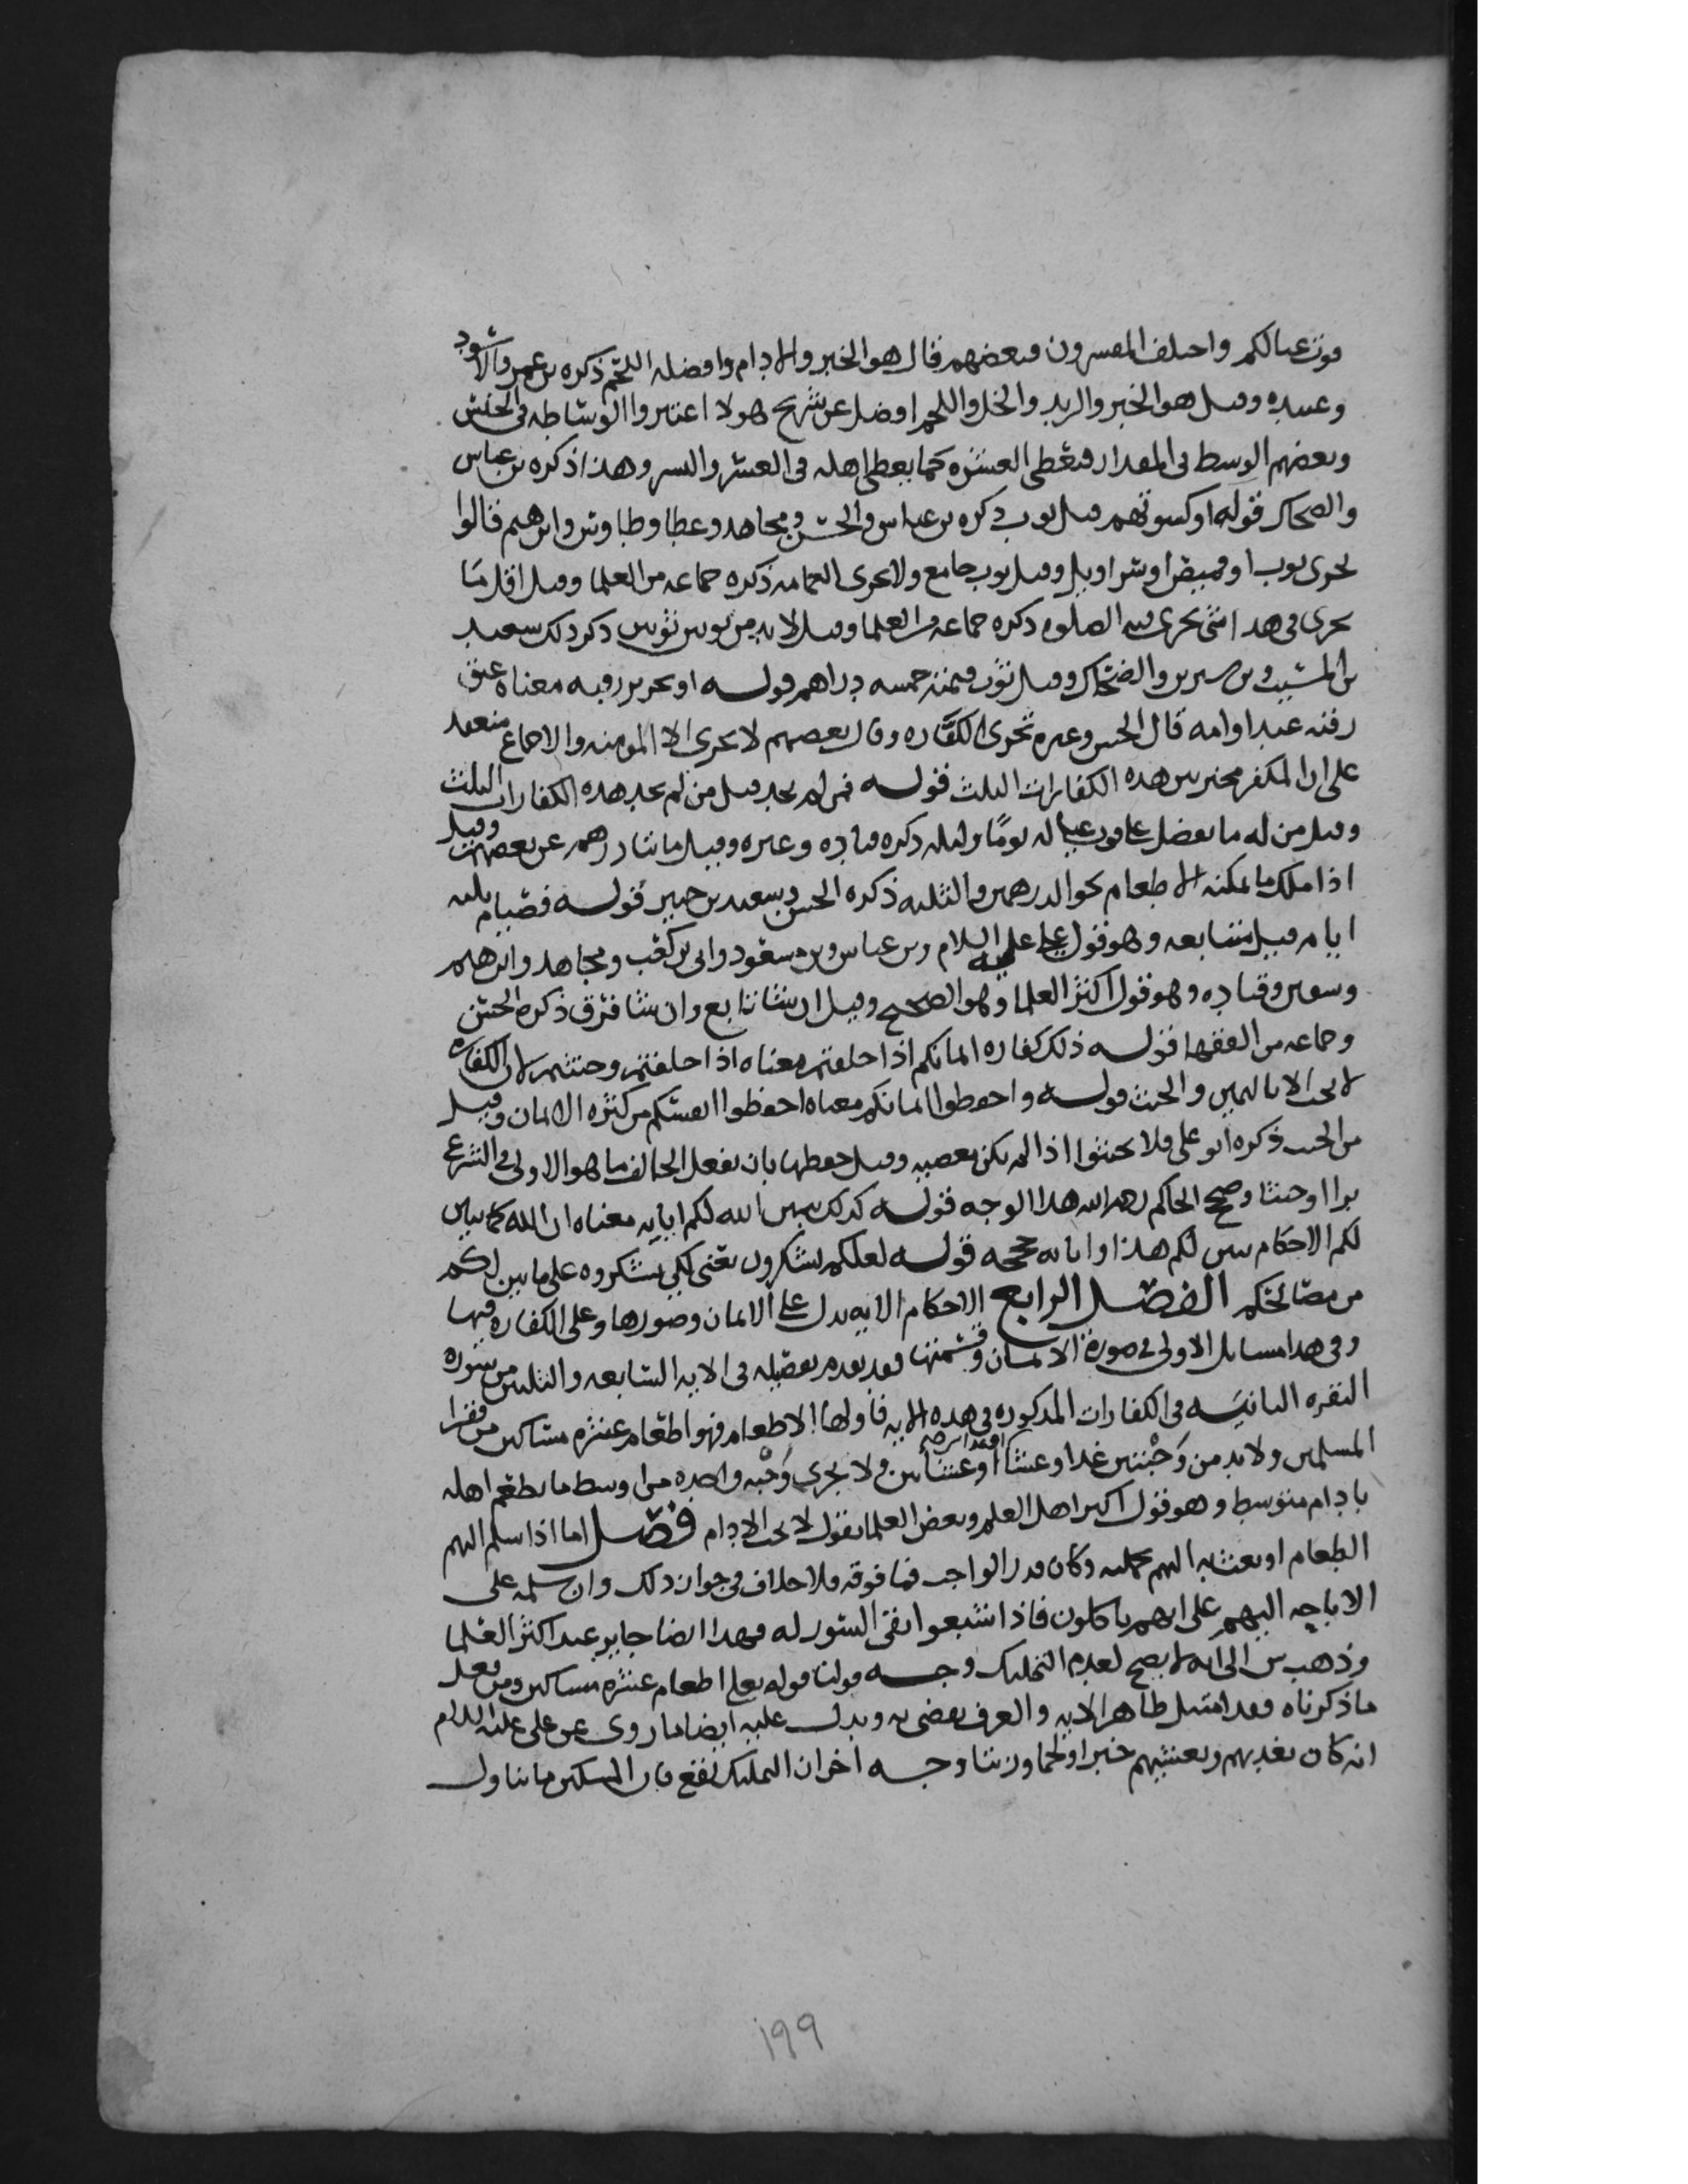 قوت عيالكم واختلف المفسرون فبعضهم قال هو الخبز والادام وافضله اللحم ذكره بن عمر والاسود
وعبيده وقيل هو الخبز والزيد والخل واللحم افضل عن شريح هولا اعتبروا الوساطه في الجنس
وبعضهم الوسط في المقدار فتعطى العشره كما يعطي اهله في العسر واليسر وهذا ذكره بن عباس
والضحاك قوله او كسوتهم قيل ثوب ذكره بن عباس والحسن ومجاهد وعطا وطاوس وابرهيم قالوا
يجزى ثوب او قميص او سراويل وقيل ثوب جامع ولا يجزى العمامه ذكره جماعه من العلما وقيل اقل ما
يجزى في هذا شى يجزى فيه الصلوه ذكره جماعه من العلما وقيل لا بد من ثوبين ثوبين ذكر ذلك سعيد
بن المسيب وبن سيرين والضحاك وقيل ثوب قيمته خمسه دراهم قوله او تحرير رقبه معناه عتق
رقبه عبد او امه قال الحسن وغيره تجزى الكفاره وقال بعضهم لا يجزى الا المومنه والاجماع منعقد
على ان المكفر مخير بين هذه الكفارات الثلث قوله فمن لم يجد قيل من لم يجد هذه الكفارات الثلث
وقيل من له ما يفضل على قوت عياله يومًا وليله ذكره قتاده وغيره وقيل مائتا درهم عن بعضهم وقيل
اذا ملك ما يمكنه الاطعام نحو الدرهمين والثلثه ذكره الحسن وسعيد بن جبير قوله فصيام ثلثه
ايام قيل متتابعه وهو قول علي عليه السلام وبن عباس وبن مسعود وابي بن كعب ومجاهد وابرهيم
وسفين وقتاده وهو قول اكثر العلما وهو الصحيح وقيل ان شا تابع وان شا فرق ذكره الحسن
وجماعه من الفقها قوله ذلك كفاره ايمانكم اذا حلفتم معناه اذا حلفتم وحنثتم لان الكفاره
لا تجب الا باليمين والحنث قوله واحفظوا ايمانكم معناه احفظوا انفسكم من كثره الايمان وقيل
من الحنث ذكره ابو علي فلا تحنثوا اذا لم يكن معصيه وقيل حفظها بان يفعل الحالف ما هو الاولى في الشرع
برا او حنثا وصحح الحاكم رحمه الله هذا الوجه قوله كذلك يبين الله لكم اياته معناه ان الله كما بين
لكم الاحكام يبين لكم هذا واياته حججه قوله لعلكم تشكرون يعني لكي تشكروه على ما بين لكم
من مصالحكم الفصل الرابع الاحكام الايه تدل على الايمان وصورها وعلى الكفاره فيها
وفي هذا مسايل الاولى في صورة الايمان وقسمتها فقد تقدم تفصيله في الايه السابعه والثلثين من سوره
البقره الثانيه في الكفارات المذكوره في هذه الايه فاولها الاطعام فهو اطعام عشره مساكين من فقرا
المسلمين ولا بد من وَجْبتين غدا وعشا او عشائين ولا يجزى وَجْبه واحده من اوسط ما يطعم اهله
بادام متوسط وهو قول اكثر اهل العلم وبعض العلما يقول لا يجب الادام فصل اما اذا سلم اليهم
الطعام او بعث به اليهم وكان قدر الواجب فما فوقه فلا خلاف في جواز ذلك وان سلمه على
الاباحه اليهم على انهم ياكلون فاذا شبعوا بقى السور له فهذا ايضا جايز عند اكثر العلما
وذهب ش الى انه لا يصح لعدم التمليك وجه قولنا قوله تعالى اطعام عشره مساكين ومن فعل
ما ذكرناه فقد امتثل ظاهر الايه والعرف يقضي به ويدل عليه ايضا ما روى عن علي عليه السلام
انه كان يغديهم ويعشيهم خبزا ولحما وزيتا وجه اخر ان التمليك يقع بان المسكين ما يتناول
١٩٩